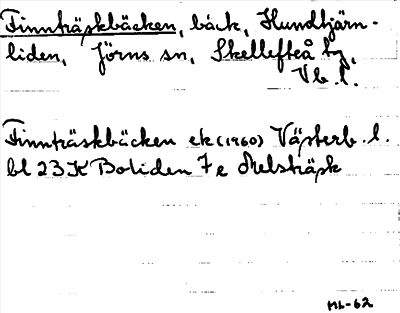 Finnträskbäcken, bäck, Hundtjärn-
liden, Jörns sn, Skellefteå tg,
Vb. l.
Finnträskbäcken ek (1960) Västerb. l.
bl 23 K Boliden 7 e Melsträsk
ML-62